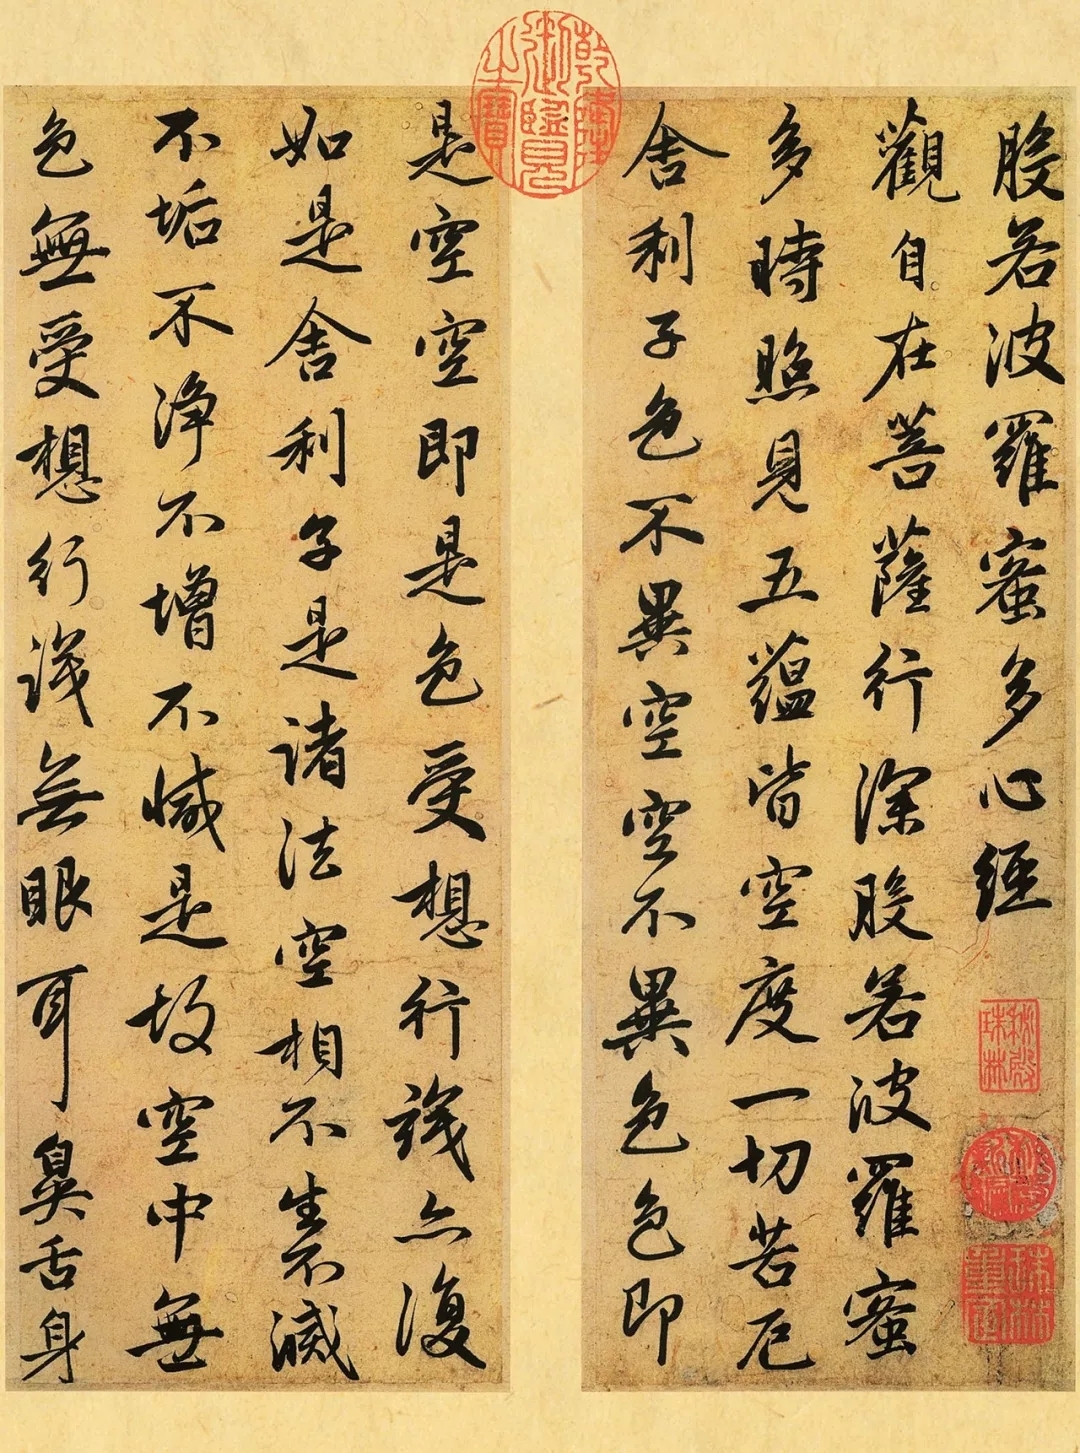 般若波羅蜜多心經
觀自在菩薩行深般若波羅蜜
多時照見五蘊皆空度一切苦厄
舍利子色不異空空不異色色即
是空空即是色受想行識亦復
如是舍利子是諸法空相不生不滅
不垢不淨不增不減是故空中無
色無受想行識無眼耳鼻舌身
乾隆御覽之寶
秘殿珠林
珠林重定